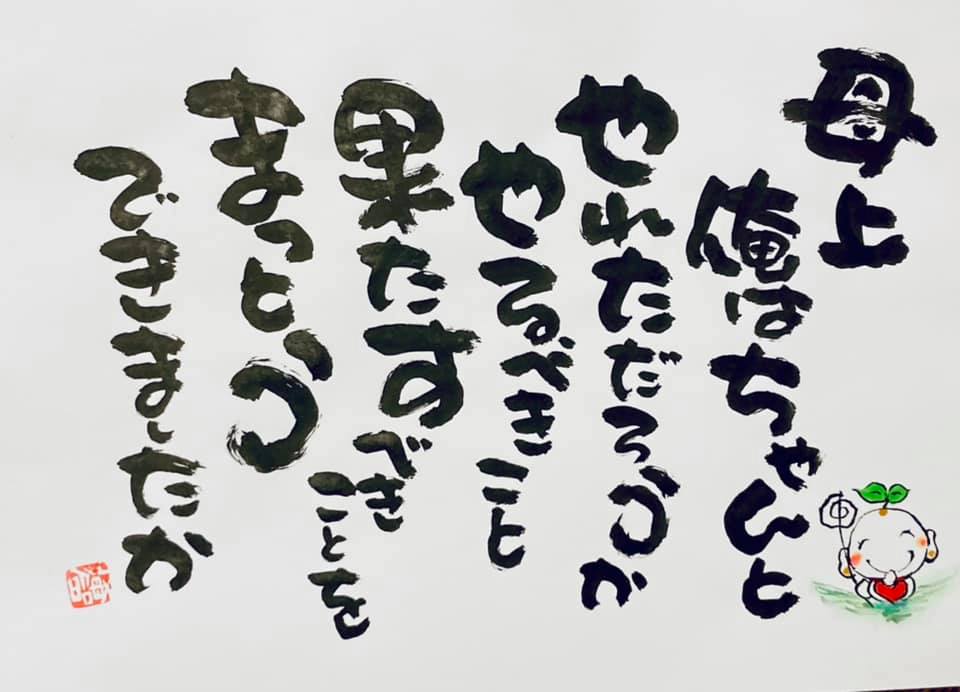 母上
俺はちゃんと
やれただろうか
やるべきこと
果たすべき
ことを
まっとう
できましたか